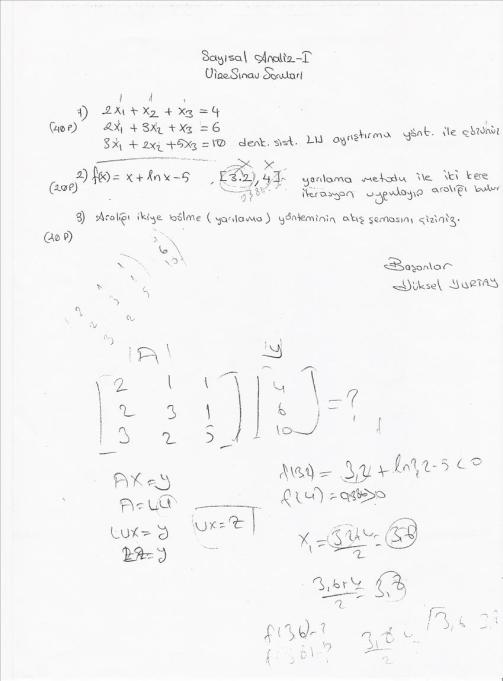 Sayısal Analiz-I
Vize Sınav Soruları
1) 2x₁ + x₂ + x₃ = 4
(40P) 2x₁ + 3x₂ + x₃ = 6
3x₁ + 2x₂ + 5x₃ = 10 denk. sist. LU ayrıştırma yönt. ile çözünüz
2) f(x) = x + lnx - 5 , [3.2, 4] yarılama metodu ile iki kere
(20P) iterasyon uygulayıp aralığı bulun
3) Aralığı ikiye bölme (yarılama) yönteminin akış şemasını çiziniz.
(40P)
Başarılar
Yüksel YURTAY
|A| |y|
[2 1 1] [4]
[2 3 1] [6] = ?
[3 2 5] [10]
AX = y
A = LU
LUX = y UX = Z
LZ = y
f(3,2) = 3,2 + ln3,2 - 5 < 0
f(4) =
x₁ = 3,2+4 / 2 = 3,6
3,6+4 / 2 = 3,8
f(3,6) = ?